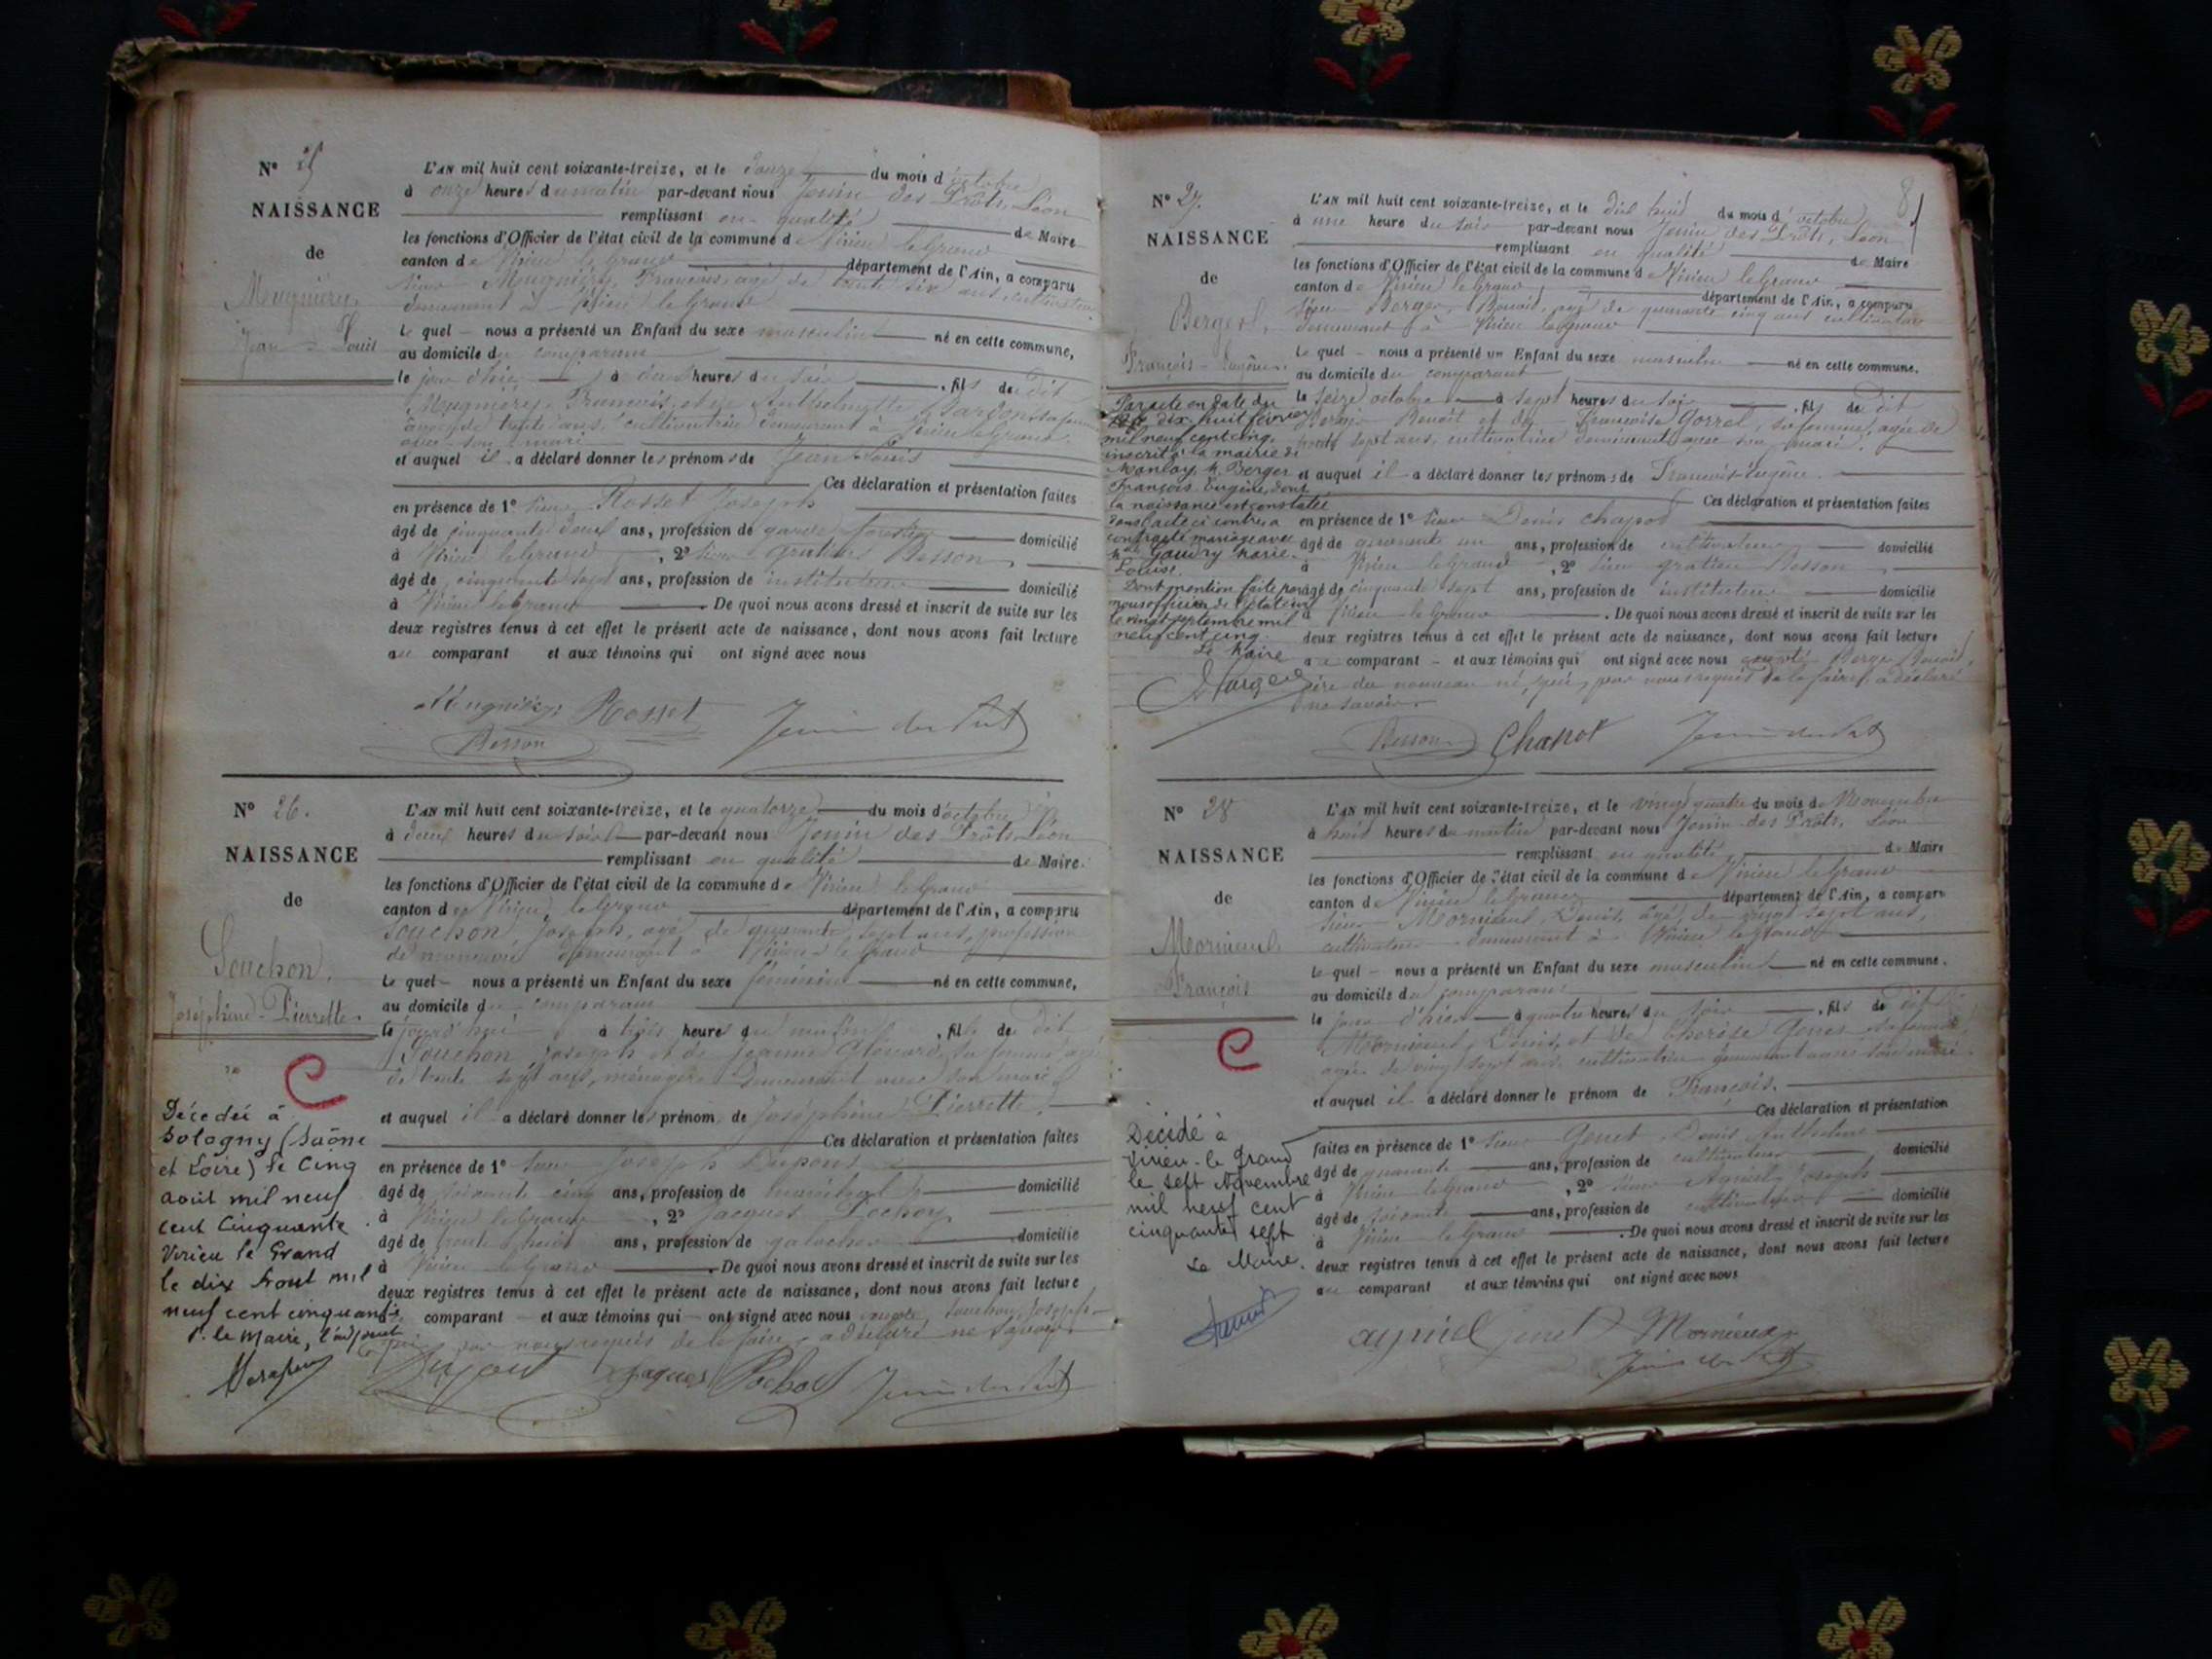 N° 25
NAISSANCE
de
Meugniery
Jean-Louis
L'AN mil huit cent soixante-treize, et le douze du mois d'octobre
à onze heures du matin par-devant nous Jenin des Prôts, Léon
remplissant en qualité de Maire
les fonctions d'Officier de l'état civil de la commune de Virieu le Grand
canton de Virieu le Grand département de l'Ain, a comparu
sieur Meugniery, François, agé de trente six ans, cultivateur
demeurant à Virieu le Grand
le quel nous a présenté un Enfant du sexe masculin né en cette commune,
au domicile du comparant
le jour d'hier à heures du soir, fils du dit
Meugniery, François, et de Anthelmette
agée de trente ans, cultivatrice demeurant à Virieu le Grand
avec son mari
et auquel il a déclaré donner les prénoms de Jean Louis
Ces déclaration et présentation faites
en présence de 1° sieur Rosset Joseph
âgé de cinquante deux ans, profession de garde forestier domicilié
à Virieu le Grand, 2° sieur Gratien Besson,
âgé de cinquante sept ans, profession de instituteur domicilié
à Virieu le Grand. De quoi nous avons dressé et inscrit de suite sur les
deux registres tenus à cet effet le présent acte de naissance, dont nous avons fait lecture
au comparant et aux témoins qui ont signé avec nous
Meugniery Rosset Jenin des Prôts
Besson
N° 26.
NAISSANCE
de
Souchon.
Joséphine-Pierrette.
C
Décédée à
Sologny (Saône
et Loire) le Cinq
août mil neuf
cent Cinquante.
Virieu le Grand
le dix Août mil
neuf cent cinquante
P. le Maire, l'adjoint
L'AN mil huit cent soixante-treize, et le quatorze du mois d'octobre
à deux heures du soir par-devant nous Jenin des Prôts Léon
remplissant en qualité de Maire.
les fonctions d'Officier de l'état civil de la commune de Virieu le Grand
canton de Virieu le Grand département de l'Ain, a comparu
Souchon, Joseph, agé de quarante sept ans, profession
de manœuvre demeurant à Virieu le Grand
le quel nous a présenté un Enfant du sexe féminin né en cette commune,
au domicile du comparant
le jourd'hui à trois heures du matin, fille du dit
Souchon, Joseph et de Jeanne sa femme agée
de trente sept ans, ménagère demeurant avec son mari
et auquel il a déclaré donner les prénom de Joséphine Pierrette.
Ces déclaration et présentation faites
en présence de 1° sieur Joseph Dupont
âgé de soixante cinq ans, profession de domicilié
à Virieu le Grand, 2° Jacques Pochoy
âgé de trente huit ans, profession de galocher domicilié
à Virieu le Grand. De quoi nous avons dressé et inscrit de suite sur les
deux registres tenus à cet effet le présent acte de naissance, dont nous avons fait lecture
au comparant et aux témoins qui ont signé avec nous excepté Souchon Joseph
qui par nous requis de le faire, a déclaré ne savoir.
Dupont Jaques Pochoy Jenin des Prôts
8
N° 27.
NAISSANCE
de
Berger,
François-Eugène.
Par acte en date du
dix huit février
mil neuf cent cinq,
inscrit à la mairie de
Manlay, M. Berger
François-Eugène, dont
la naissance est constatée
dans l'acte ci contre a
contracté mariage avec
Gaudry Marie-
Louise.
Dont mention faite par
nous officier de l'état civil
le vingt septembre mil
neuf cent cinq.
Le Maire
L'AN mil huit cent soixante-treize, et le dix huit du mois d'octobre
à une heure du soir par-devant nous Jenin des Prôts, Léon
remplissant en qualité de Maire
les fonctions d'Officier de l'état civil de la commune de Virieu le Grand
canton de Virieu le Grand, département de l'Ain, a comparu
sieur Berger, Benoit, agé de quarante cinq ans cultivateur
demeurant à Virieu le Grand
le quel nous a présenté un Enfant du sexe masculin né en cette commune.
au domicile du comparant
le seize octobre à sept heures du soir, fils du dit
Berger Benoit et de Françoise Gorrel, sa femme, agée de
trente sept ans, cultivatrice demeurant avec son mari.
et auquel il a déclaré donner les prénoms de François-Eugène.
Ces déclaration et présentation faites
en présence de 1° sieur Denis Chapot
âgé de quarante un ans, profession de cultivateur domicilié
à Virieu le Grand, 2° sieur Gratien Besson,
âgé de cinquante sept ans, profession de instituteur domicilié
à Virieu le Grand. De quoi nous avons dressé et inscrit de suite sur les
deux registres tenus à cet effet le présent acte de naissance, dont nous avons fait lecture
au comparant et aux témoins qui ont signé avec nous excepté Berger Benoit,
père du nouveau né, qui, par nous requis de le faire, a déclaré
ne savoir.
Besson Chapot Jenin des Prôts
N° 28
NAISSANCE
de
Mornieux
François
C
Décédé à
Virieu-le-Grand
le sept Novembre
mil neuf cent
cinquante sept
Le Maire.
L'AN mil huit cent soixante-treize, et le vingt quatre du mois de Novembre
à huit heures du matin par-devant nous Jenin des Prôts, Léon
remplissant en qualité de Maire
les fonctions d'Officier de l'état civil de la commune de Virieu le Grand
canton de Virieu le Grand département de l'Ain, a comparu
sieur Mornieux, Denis, agé de vingt sept ans,
cultivateur demeurant à Virieu le Grand
le quel nous a présenté un Enfant du sexe masculin né en cette commune.
au domicile du comparant
le jour d'hier à quatre heures du soir, fils du dit
Mornieux, Denis, et de Thérèse Genet sa femme
agée de vingt sept ans cultivatrice demeurant avec son mari
et auquel il a déclaré donner le prénom de François.
Ces déclaration et présentation
faites en présence de 1° sieur Genet Denis Anthelme
âgé de quarante ans, profession de cultivateur domicilié
à Virieu le Grand, 2° sieur Aguiel Joseph
âgé de soixante ans, profession de cultivateur domicilié
à Virieu le Grand. De quoi nous avons dressé et inscrit de suite sur les
deux registres tenus à cet effet le présent acte de naissance, dont nous avons fait lecture
au comparant et aux témoins qui ont signé avec nous
Genet Mornieux
Jenin des Prôts